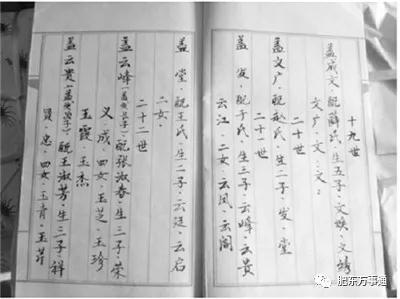 十九世
孟成文·配薛氏·生五子·文焕·文绣
文广·文·文:
二十世
孟文广·配氏·生二子·发·堂
二十一世
孟发·配于氏·生三子·云峰·云贵
云江·二女·云凤·云阁
孟堂·配王氏·生二子·云廷·云启
二女·
二十二世
孟云峰(孟发长子)配张淑春·生三子·荣
义·成·四女·玉芝·玉珍
玉霞·玉杰
孟云贵(孟发次子)配王淑芳·生三子·祥
贤·忠·四女·玉青·玉苹
肥东万事通